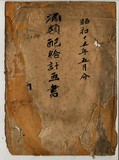 昭和十五年五月分
酒類配給計画書